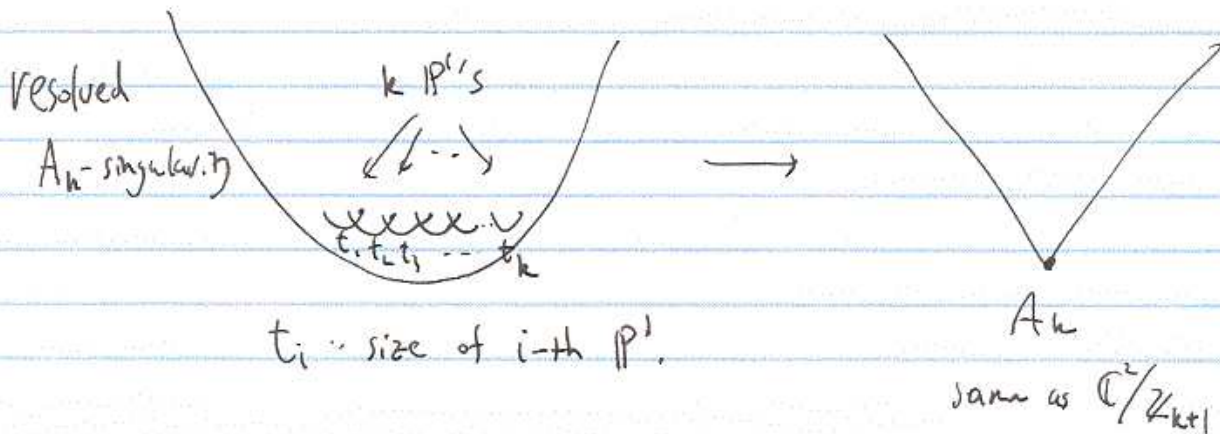 resolved
A_k-singularity
k ℙ¹'s
t₁ t₂ t₃ ... t_k
t_i : size of i-th ℙ¹.
A_k
same as ℂ²/ℤ_{k+1}